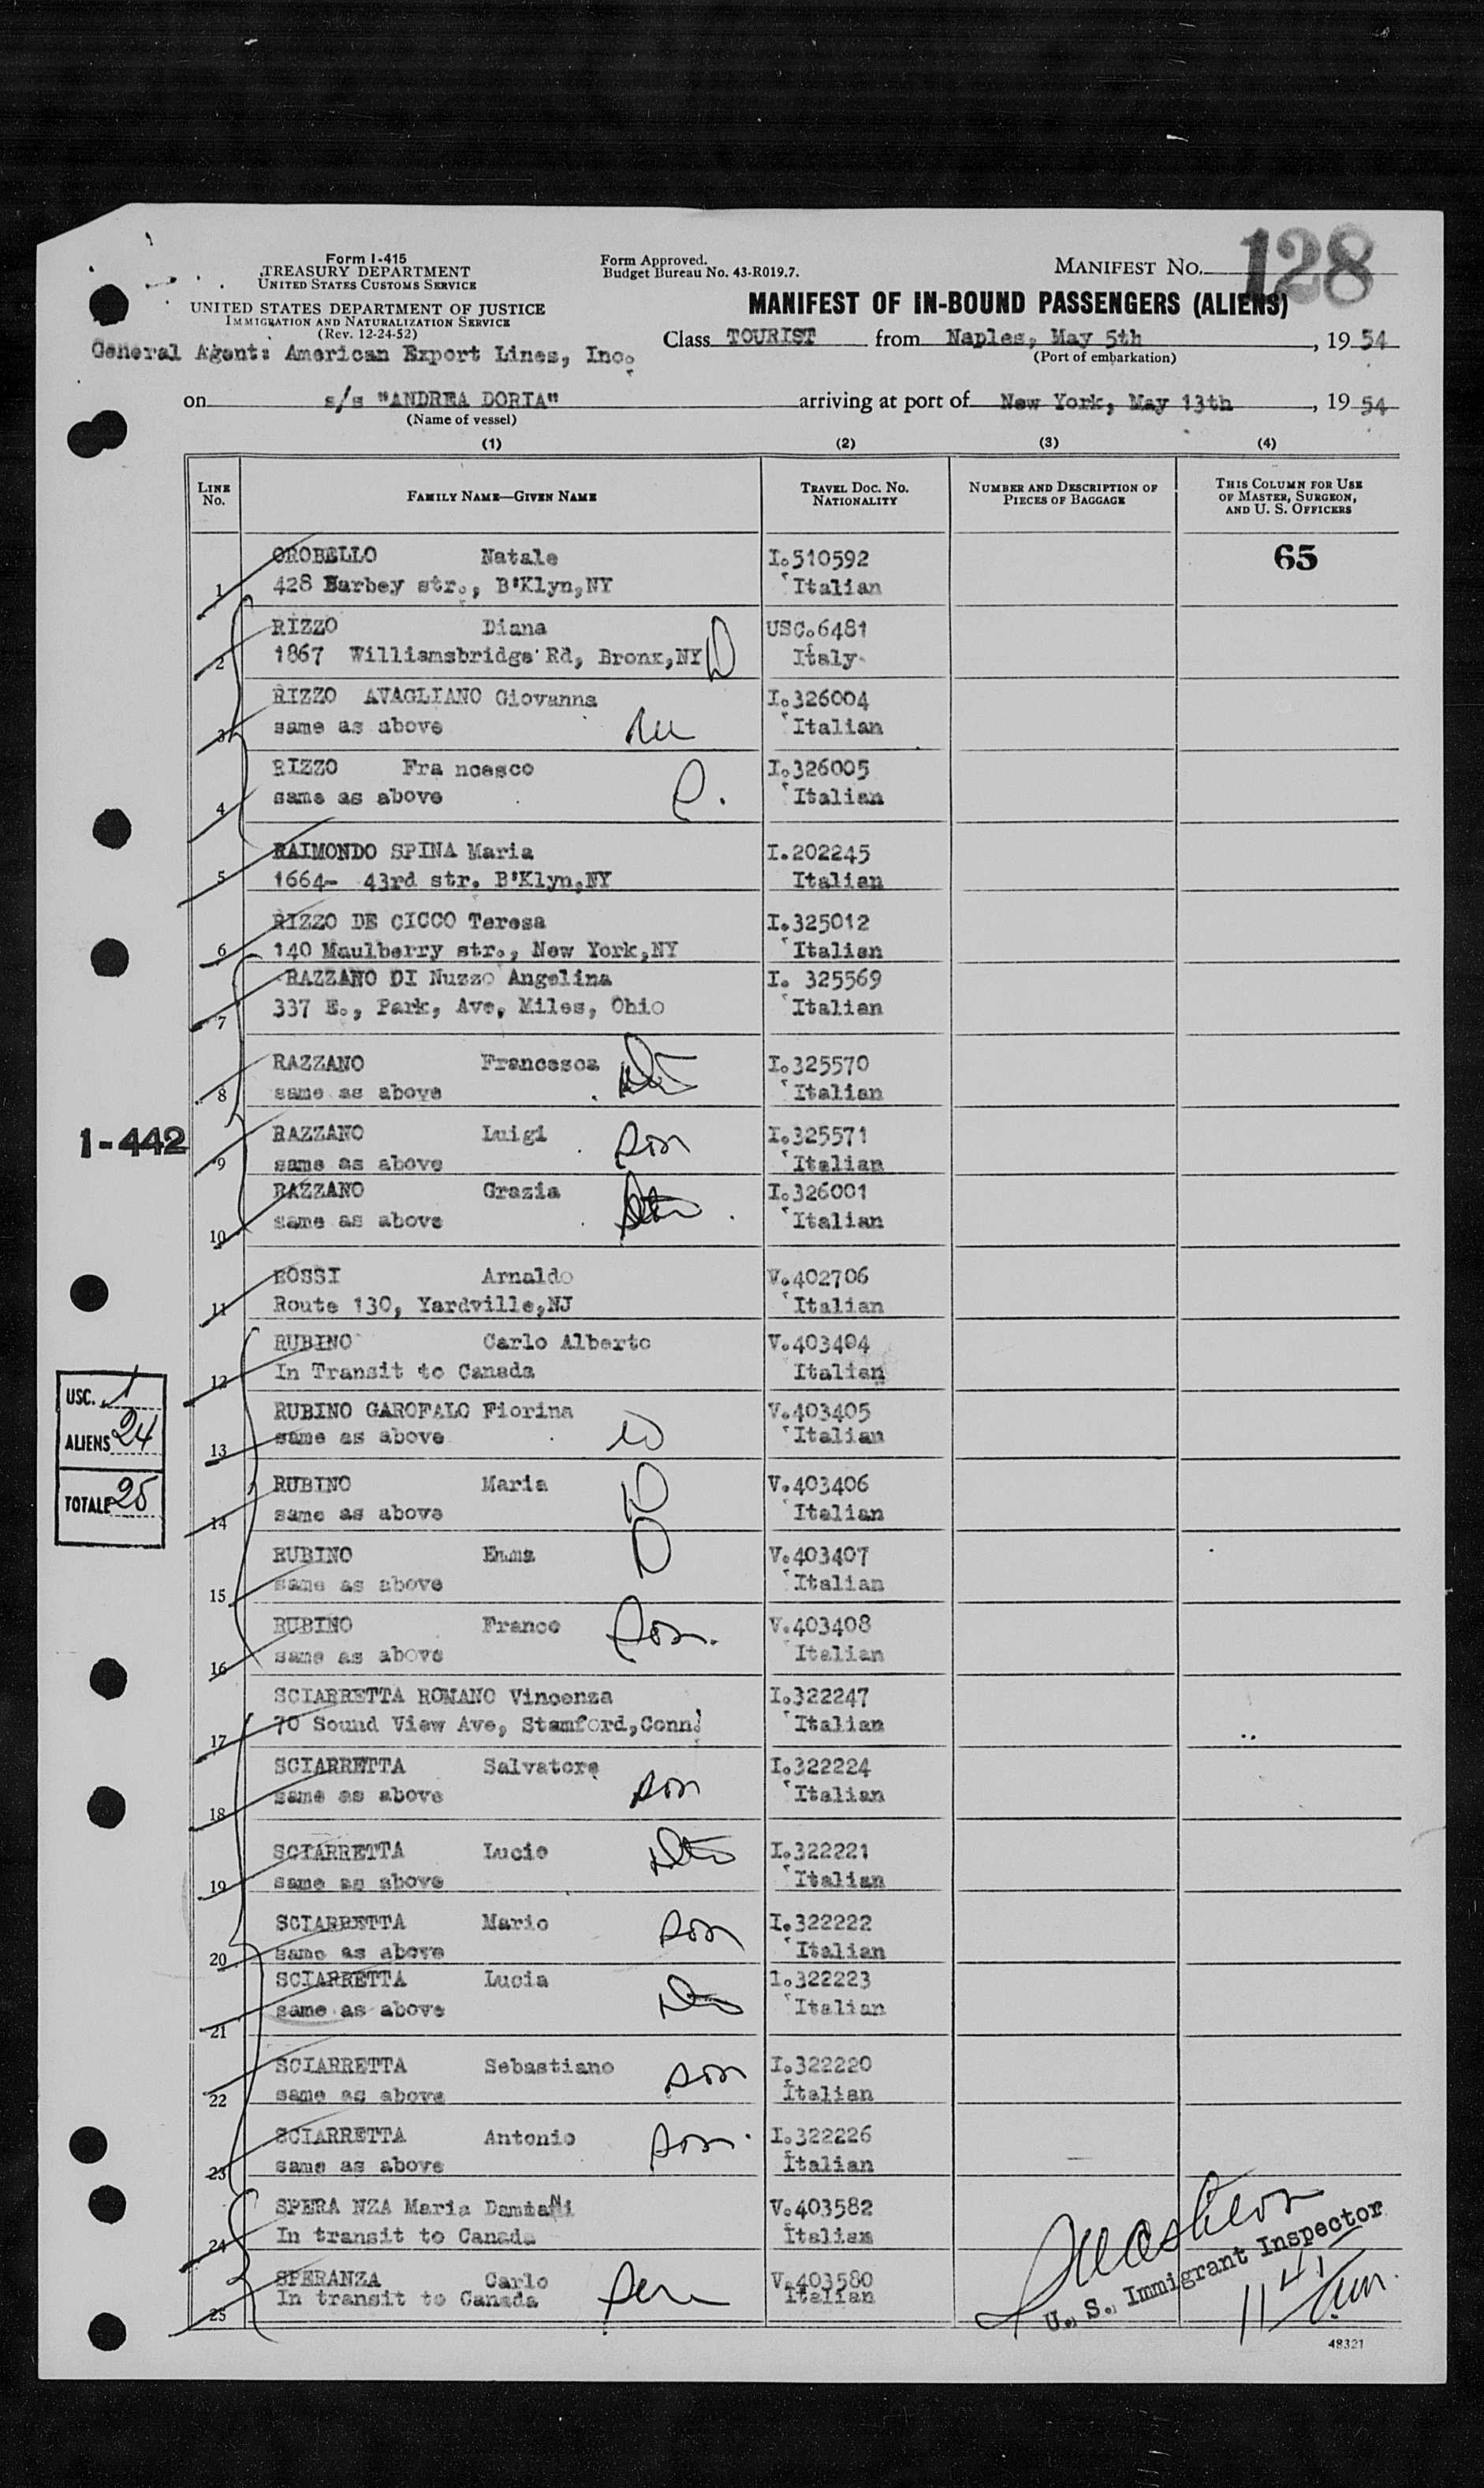 128
Form I-415
TREASURY DEPARTMENT
UNITED STATES CUSTOMS SERVICE
UNITED STATES DEPARTMENT OF JUSTICE
IMMIGRATION AND NATURALIZATION SERVICE
(Rev. 12-24-52)
General Agent: American Export Lines, Inc.
Form Approved.
Budget Bureau No. 43-R019.7.
MANIFEST NO.
MANIFEST OF IN-BOUND PASSENGERS (ALIENS)
Class TOURIST from Naples, May 5th, 1954
(Port of embarkation)
on s/s "ANDREA DORIA" arriving at port of New York, May 13th, 1954
(Name of vessel)
(1) (2) (3) (4)
LINE No. FAMILY NAME—GIVEN NAME TRAVEL DOC. NO. NATIONALITY NUMBER AND DESCRIPTION OF PIECES OF BAGGAGE THIS COLUMN FOR USE OF MASTER, SURGEON, AND U. S. OFFICERS
OROBELLO Natale I.510592 65
1 428 Barbey str., B'Klyn,NY Italian
RIZZO Diana USC.6481
2 1867 Williamsbridge Rd, Bronx,NY D Italy
RIZZO AVAGLIANO Giovanna I.326004
3 same as above Italian
RIZZO Fra ncesco I.326005
4 same as above Italian
RAIMONDO SPINA Maria I.202245
5 1664- 43rd str. B'Klyn,NY Italian
RIZZO DE CICCO Teresa I.325012
6 140 Maulberry str., New York,NY Italian
RAZZANO DI Nuzzo Angelina I. 325569
7 337 E., Park, Ave, Miles, Ohio Italian
RAZZANO Francesca I.325570
8 same as above Italian
1-442
RAZZANO Luigi son I.325571
9 same as above Italian
RAZZANO Grazia I.326001
10 same as above Italian
ROSSI Arnaldo V.402706
11 Route 130, Yardville,NJ Italian
RUBINO Carlo Alberto V.403404
12 In Transit to Canada Italian
RUBINO GAROFALO Fiorina V.403405
13 same as above Italian
RUBINO Maria D V.403406
14 same as above Italian
RUBINO Emma D V.403407
15 same as above Italian
RUBINO Franco son. V.403408
16 same as above Italian
USC. 1
ALIENS 24
TOTALE 25
SCIARRETTA ROMANO Vincenza I.322247
17 70 Sound View Ave, Stamford,Conn. Italian
SCIARRETTA Salvatore I.322224
18 same as above son Italian
SCIARRETTA Lucie I.322221
19 same as above Italian
SCIARRETTA Mario son I.322222
20 same as above Italian
SCIARRETTA Lucia 1.322223
21 same as above Italian
SCIARRETTA Sebastiano son I.322220
22 same as above Italian
SCIARRETTA Antonio son I.322226
23 same as above Italian
SPERA NZA Maria DamiaNi V.403582
24 In transit to Canada Italian
SPERANZA Carlo V.403580
25 In transit to Canada Italian
U. S. Immigrant Inspector
48321